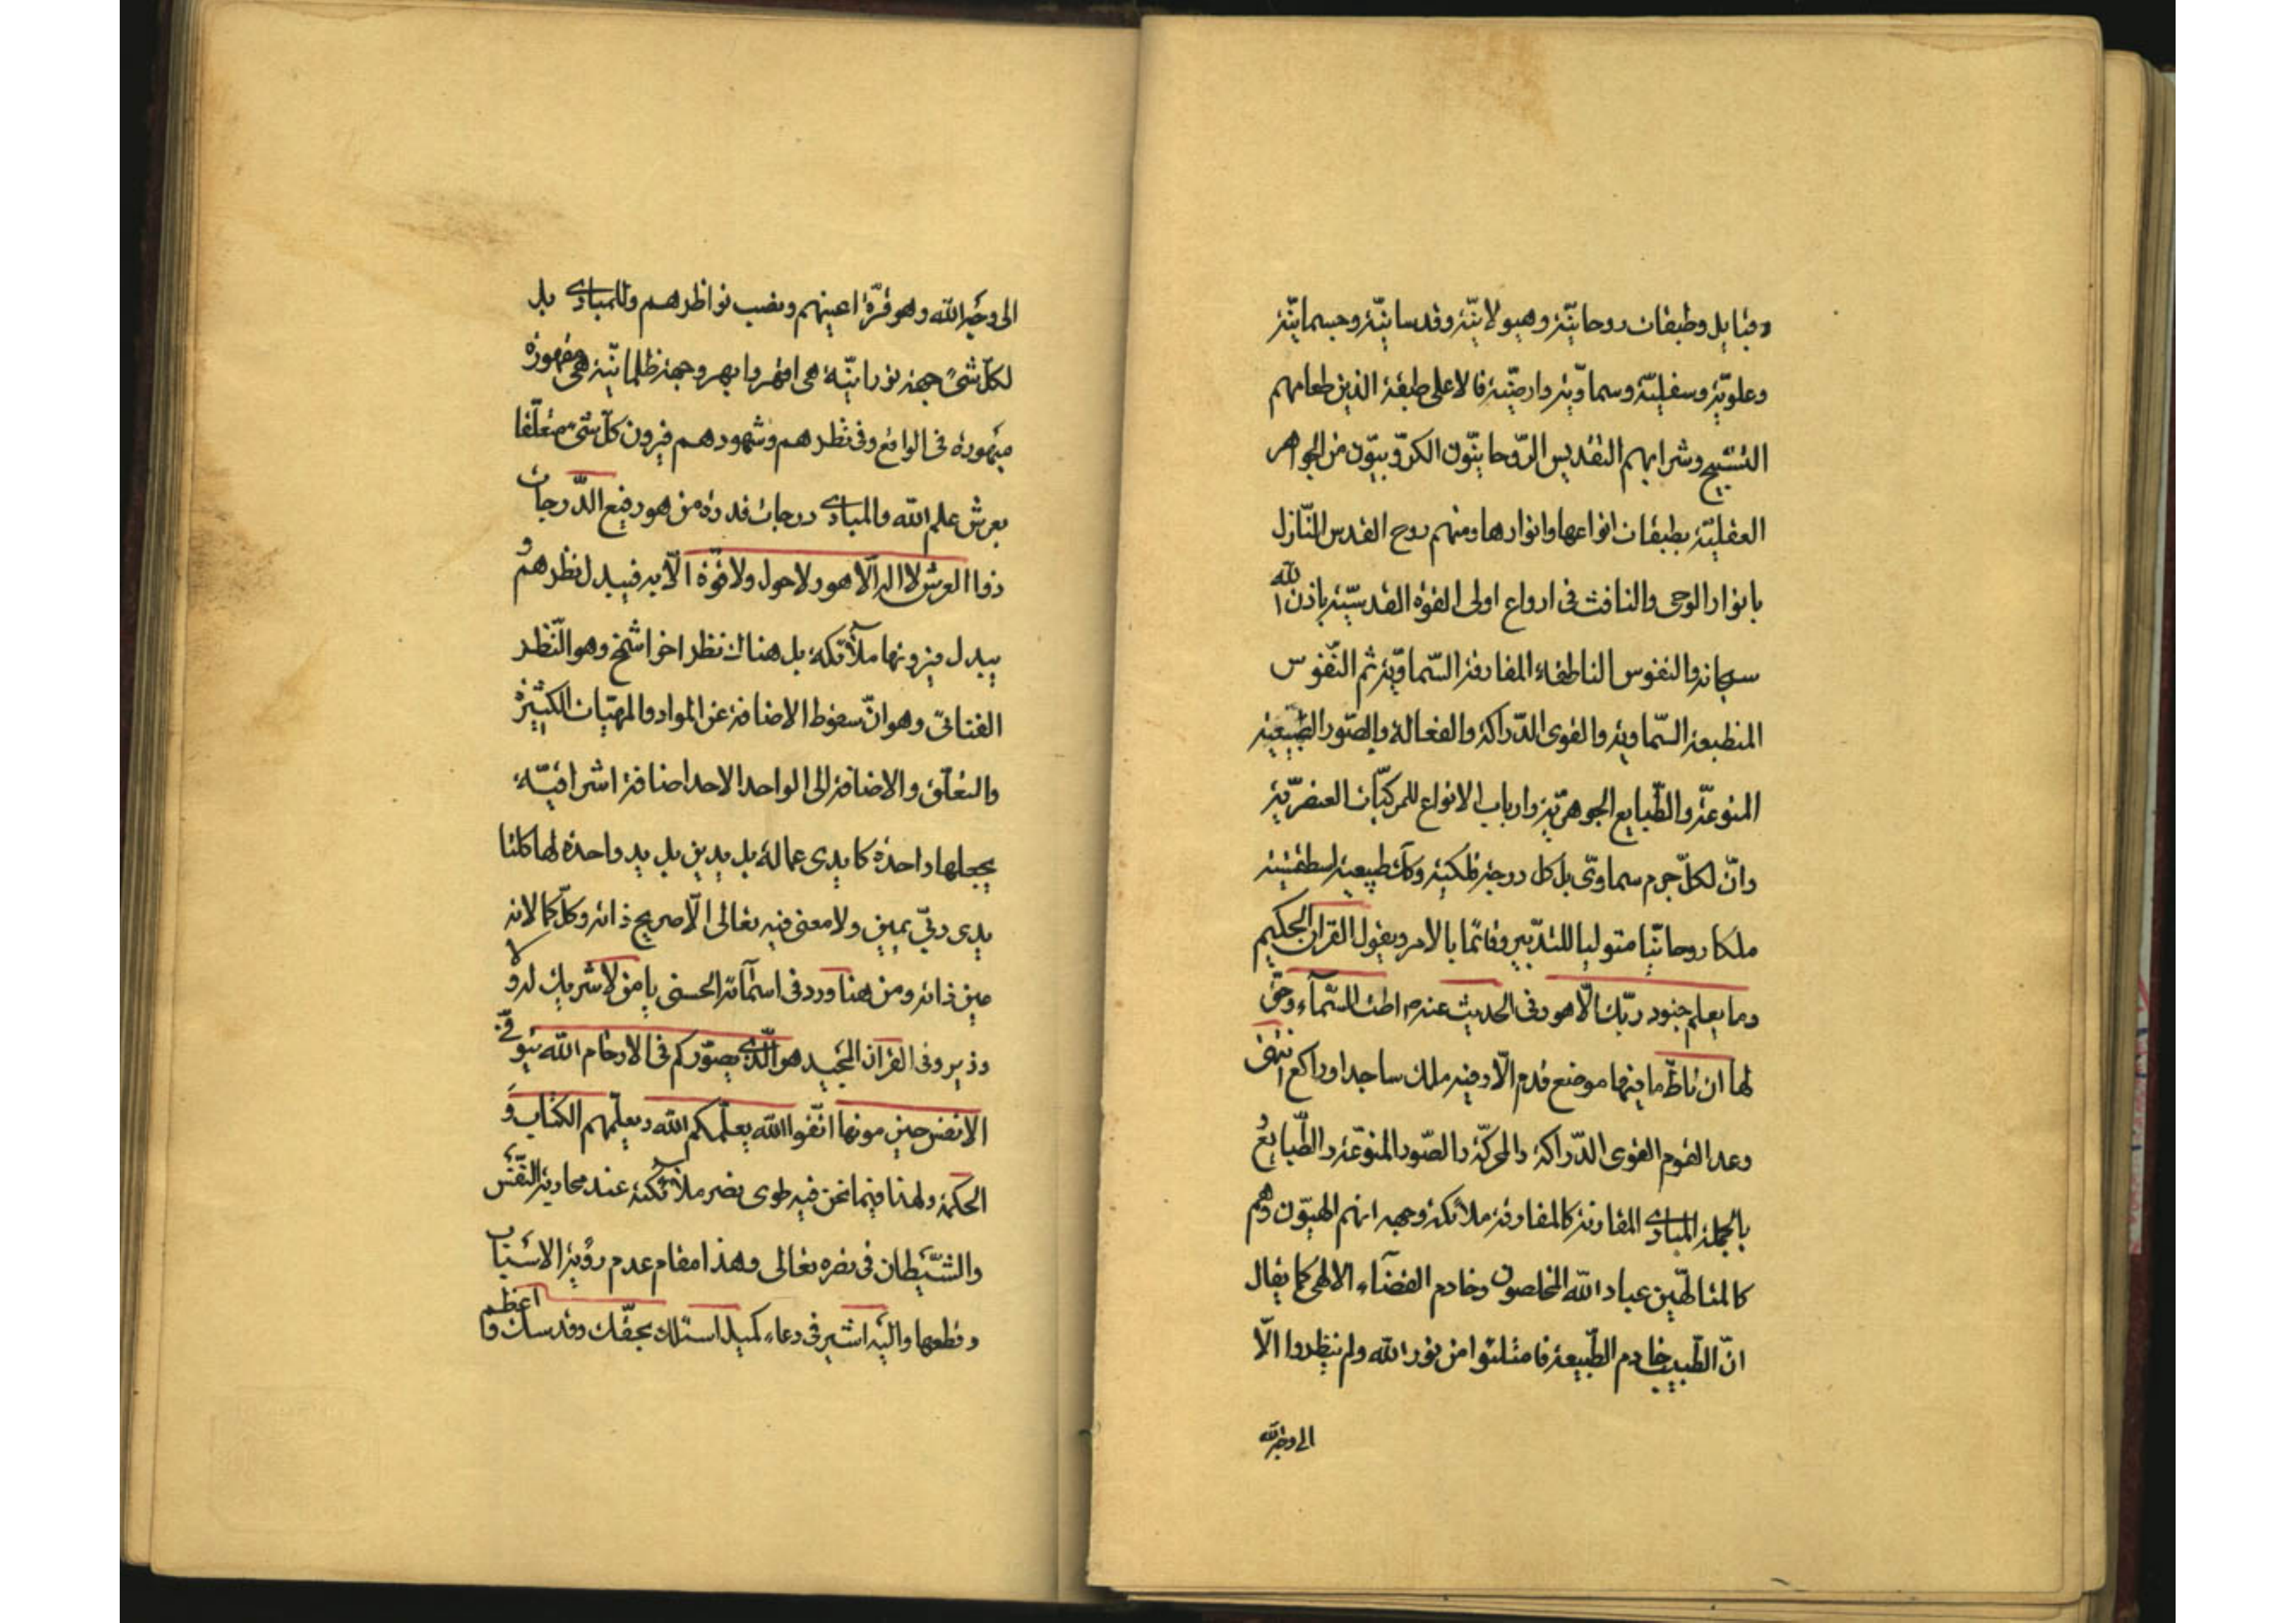 وقبايل وطبقات روحانيّة وهيولانيّة وقدسانيّة وجسمانيّة
وعلويّة وسفليّة وسماويّة وارضيّة فالاعلى طبقة الذين طعامهم
التسبيح وشرابهم التقديس الرّوحانيّون الكرّوبيّون من الجواهر
العقليّة بطبقات انواعها وانوارها ومنهم روح القدس النّازل
بانوار الوحى والنافث فى ارواع اولى القوّه القدسيّة باذن الله
سبحانه والنفوس الناطقة المفارقة السّماويّة ثم النّفوس
المنطبعة السّماوية والقوى الدّراكة والفعالة والصّور الطّبيعيّة
المنوعة والطّبايع الجوهريّة وارباب الانواع للمركّبات العنصريّة
وانّ لكلّ جرم سماوىّ بل كل درجة فلكية وكل طبيعية اسطقسّية
ملكا روحانيّا متوليا للتدبير وقائما بالامر ويقول القرآن الحكيم
وما يعلم جنود ربّك الّا هو وفى الحديث عنه ص اطت السّمآء وحقّ
لها ان تاطّ ما فيها موضع قدم الّا وفيه ملك ساجد او راكع انتهى
وعد القوم القوى الدّراكة والمحركّة والصّور المنوّعة والطّبايع و
بالجملة المبادى المقارنة كالمفارقة ملائكة وجهه انهم الهيّون وهم
كالمتالّهين عباد الله المخلصون وخادم القضآء الالهى كما يقال
انّ الطّبيب خادم الطّبيعة فامتلئوا من نور الله ولم ينظروا الّا
الى وجه الله
الى وجه الله وهو قرّة اعينهم ونصب نواظرهم وللمبادى بل
لكلّ شئ جهة نورانيّة هى اقهر وابهر وجهة ظلمانيّة هى مقهورة
مبهورة فى الواقع وفى نظرهم وشهودهم فيرون كلّ شئ متعلّقا
بعرش علم الله والمبادى درجات قدرة من هو رفيع الدّرجات
ذوا العرش لا اله الّا هو ولا حول ولا قوّة الّا به فيبدل نظرهم و
يبدل فيرونها ملآئكة بل هناك نظر اخر اشمخ وهو النّظر
الفنائىّ وهو انّ سقوط الاضافة عن المواد والمهيّات الكثيرة
والتعلّق والاضافة الى الواحد الاحد اضافة اشراقيّة
يجعلها واحدة كايدى عمالة بل يدين بل يد واحدة لها كلتا
يدى ربّى يمين ولا معنى فيه تعالى الّا صريح ذاته وكلّ كمالاته
عين ذاته ومن هنا ورد فى اسمآئه الحسنى يا من لا شريك له ولا
وزير وفى القرآن المجيد هو الّذى يصوّركم فى الارحام الله يتوفّى
الانفس حين موتها اتّقوا الله يعلّمكم الله ويعلّمهم الكتاب و
الحكمة ولهذا فيما نحن فيه طوى نصر ملائكته عند محاربة النّفس
والشّيطان فى نصره تعالى وهذا مقام عدم رؤية الاسباب
وقطعها واليه اشير فى دعاء كميل اسئلك بحقّك وقدسك واعظم